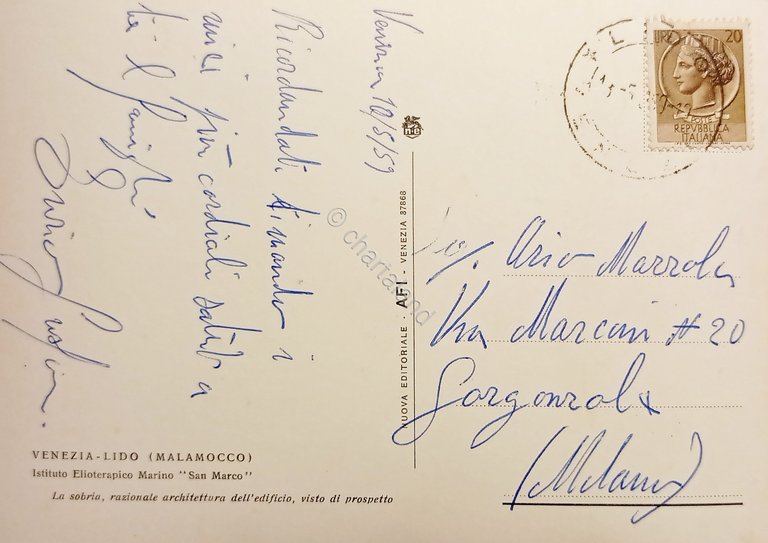 Venezia 10/5/59
Ricordandoti ti mando i
miei più cordiali saluti a
te e famiglia
VENEZIA-LIDO (MALAMOCCO)
Istituto Elioterapico Marino "San Marco"
La sobria, razionale architettura dell'edificio, visto di prospetto
NUOVA EDITORIALE - AFI - VENEZIA 87868
20
POSTE
REPVBBLICA
ITALIANA
Via Marconi N 20
Gorgonzola
(Milano)
© chartaland